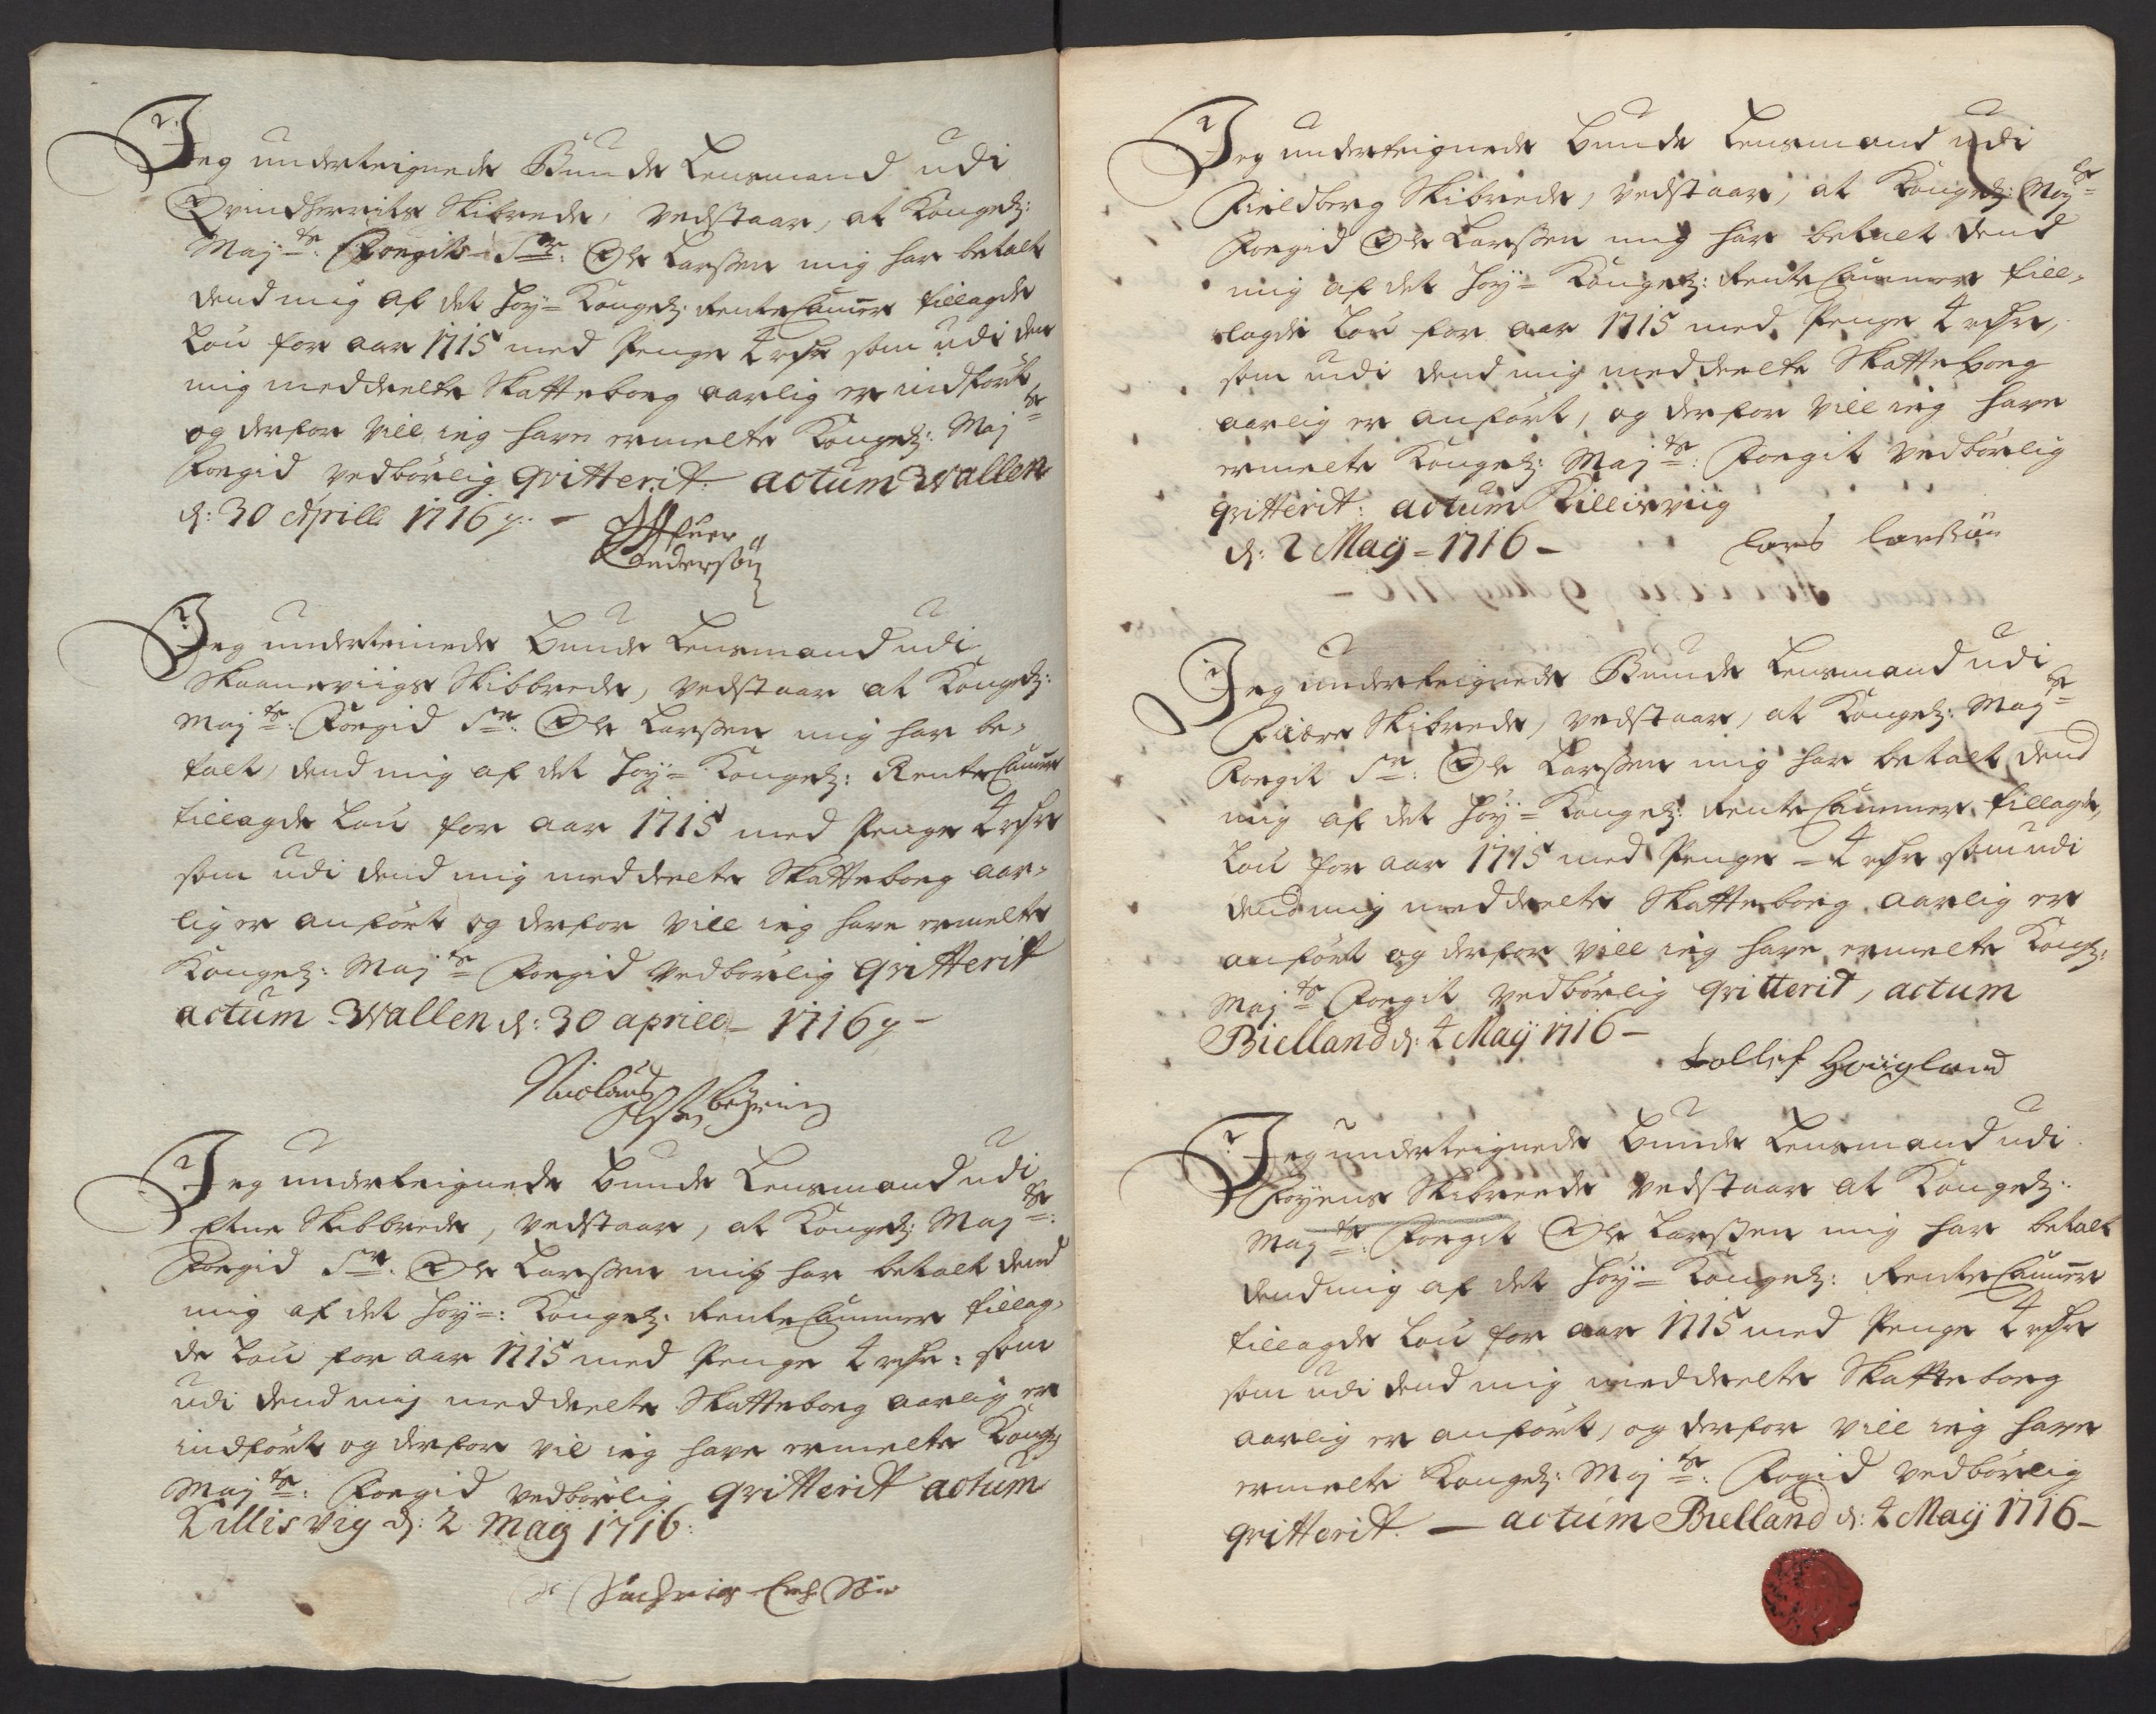 Jeg underteignede Bunde Lensmand udi
Qvindherrits Skibrede, vedstaar, at Kongel:
Maj:ts Foegit Sr: Ole Larssen mig har betalt
dend mig af det Høy= Kongel: Rente Cammer tillagde
Løn for aar 1715 med Penge 4 rdr som udi den
mig meddeelte Skattebog aarlig er indført
og derfor vill ieg have ermelte Kongel: Maj:ts
Foegid vedbørlig qvitterit. actum Wallen
d: 30 Aprill 1716
Anderssøn
Jeg underteinede Bunde Lensmand udi
Skaaneviigs Skibbrede, vedstaar at Kongel:
Maj:ts Foegid Sr: Ole Larssen mig har be=
talt, dend mig af det Høy= Kongel: Rente Cammer
tillagde Løn for aar 1715 med Penge 4 rdr
som udi dend mig meddeelte Skattebog aar=
lig er anført og derfor vill ieg have ermelte
Kongel: Maj:ts Foegid vedbørlig qvitterit
actum Wallen d: 30 aprill 1716
Nicolaus
Jeg underteignede Bunde Lensmand udi
Etne Skibbrede, vedstaar, at Kongel: Maj:ts
Foegid Sr: Ole Larssen mig har betalt dend
mig af det Høy=: Kongel: Rente Cammer tillag=
de Løn for aar 1715 med Penge 4 rdr: som
udi dend mig meddeelte Skattebog aarlig er
indført og derfor vil ieg have ermelte Kongl
Maj:ts: Foegid vedbørlig qvitterit actum
Killisvig d: 2 Maij 1716:
Jeg underteignede Bunde Lensmand udi
Fieldberg Skibrede, vedstaar, at Kongel: Maj:ts
Foegid Ole Larssen mig har betalt dend
mig af det Høy= Kongel: Rente Cammer till=
lagde Løn for aar 1715 med Penge 4 rdr,
som udi dend mig meddeelte Skattebog
aarlig er anført, og derfor vill ieg have
ermelte Kongel: Maj:ts: Foegit vedbørlig
qvitterit: actum Killisviig
d: 2 Maij = 1716 – Lars Larssøn
Jeg underteignede Bunde Lensmand udi
Fiære Skibrede, vedstaar, at Kongel: Maj:ts
Foegit Sr: Ole Larssen mig har betalt dend
mig af det Høy= Kongel: Rente Cammer tillagde,
Løn for aar 1715 med Penge – 4 rdr som udi
dend mig meddeelte Skattebog aarlig er
anført og derfor vill ieg have ermelte Kongl:
Maj:ts Foegit vedbørlig qvitterit, actum
Bielland d: 4 Maij 1716 –
tollef Houigland
Jeg underteignede Bunde Lensmand udi
Føyens Skibreede vedstaar at Kongel:
Maj:ts: Foegit Ole Larssen mig har betalt
dend mig af det Høy= Kongel: Rente Cammer
tillagde Løn for aar 1715 med Penge 4 rdr
som udi dend mig meddeelte Skattebog
aarlig er anført, og derfor vill ieg have
ermelte Kongel: Maj:ts: Fogid vedbørlig
qvitterit. – actum Bielland d: 4 Maij 1716 –